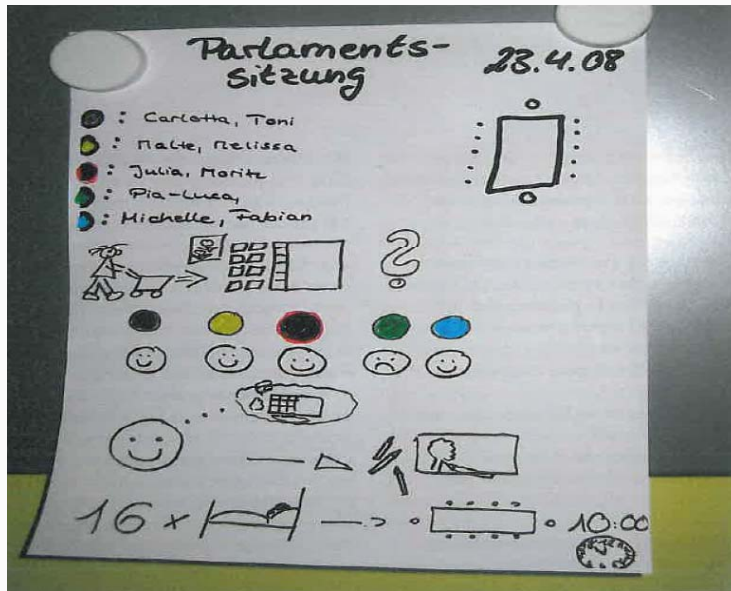 Parlaments-
sitzung
23.4.08
: Carlotta, Toni
: Malte, Melissa
: Julia, Moritz
: Pia-Luca,
: Michelle, Fabian
?
16 x
10:00